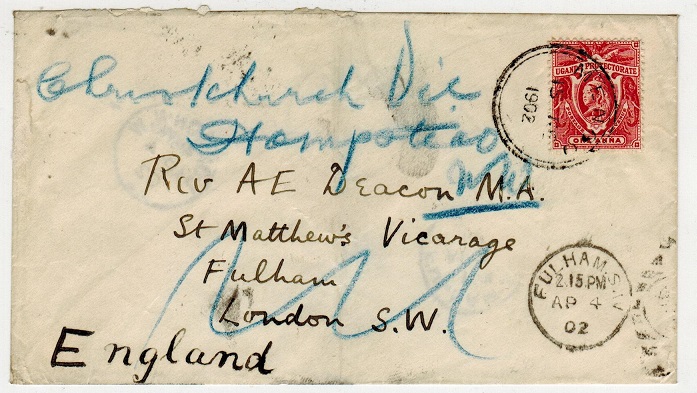 Christchurch Vic
Hampstead
N.W.
Rev AE Deacon M.A.
St Matthew's Vicarage
Fulham
London S.W.
England
UGANDA PROTECTORATE
ONE ANNA
1902
FULHAM S.W
2.15.PM
AP 4
02